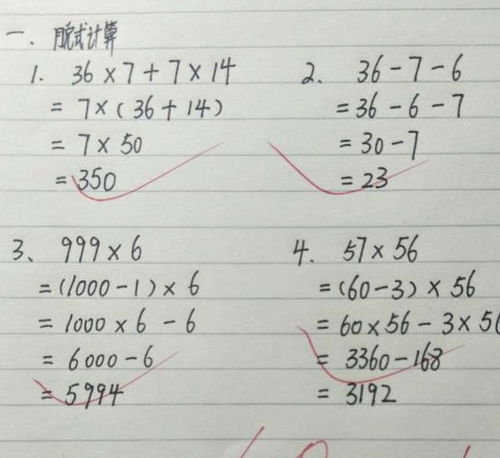 一、脱式计算
1. 36×7+7×14
=7×(36+14)
=7×50
=350
2. 36-7-6
=36-6-7
=30-7
=23
3、999×6
=(1000-1)×6
=1000×6-6
=6000-6
=5994
4. 57×56
=(60-3)×56
=60×56-3×56
=3360-168
=3192